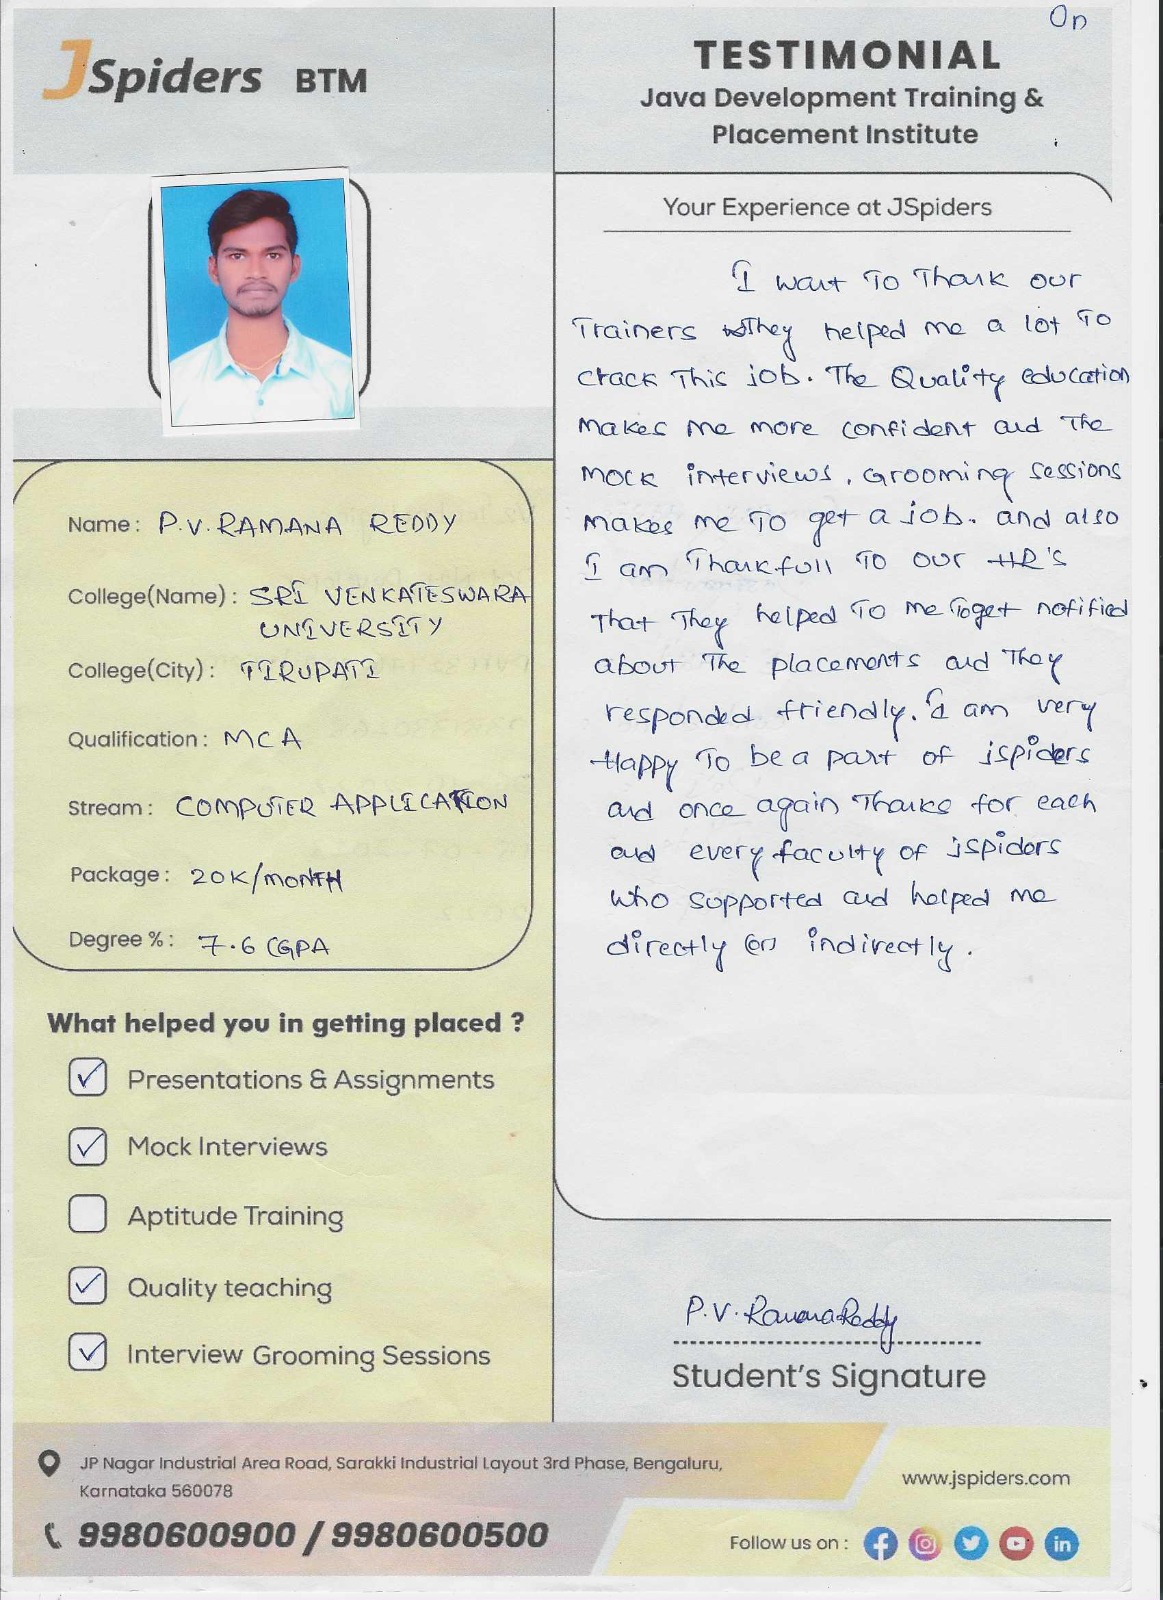 On
JSpiders BTM
TESTIMONIAL
Java Development Training &
Placement Institute
Your Experience at JSpiders
I want To Thank our
Trainers They helped me a lot To
crack This job. The Quality education
makes me more confident and The
mock interviews, Grooming sessions
makes me To get a job. and also
I am Thankfull To our HR's
That They helped To me Toget notified
about The placements and They
responded friendly. I am very
Happy To be a part of jspiders
and once again Thanks for each
and every faculty of jspiders
who supported and helped me
directly (or) indirectly.
Name: P.V. RAMANA REDDY
College(Name): SRI VENKATESWARA
UNIVERSITY
College(City): TIRUPATI
Qualification: MCA
Stream: COMPUTER APPLICATION
Package: 20K/MONTH
Degree %: 7.6 CGPA
What helped you in getting placed ?
Presentations & Assignments
Mock Interviews
Aptitude Training
Quality teaching
Interview Grooming Sessions
P.V. RamanaReddy
Student's Signature
JP Nagar Industrial Area Road, Sarakki Industrial Layout 3rd Phase, Bengaluru,
Karnataka 560078
9980600900 / 9980600500
www.jspiders.com
Follow us on :